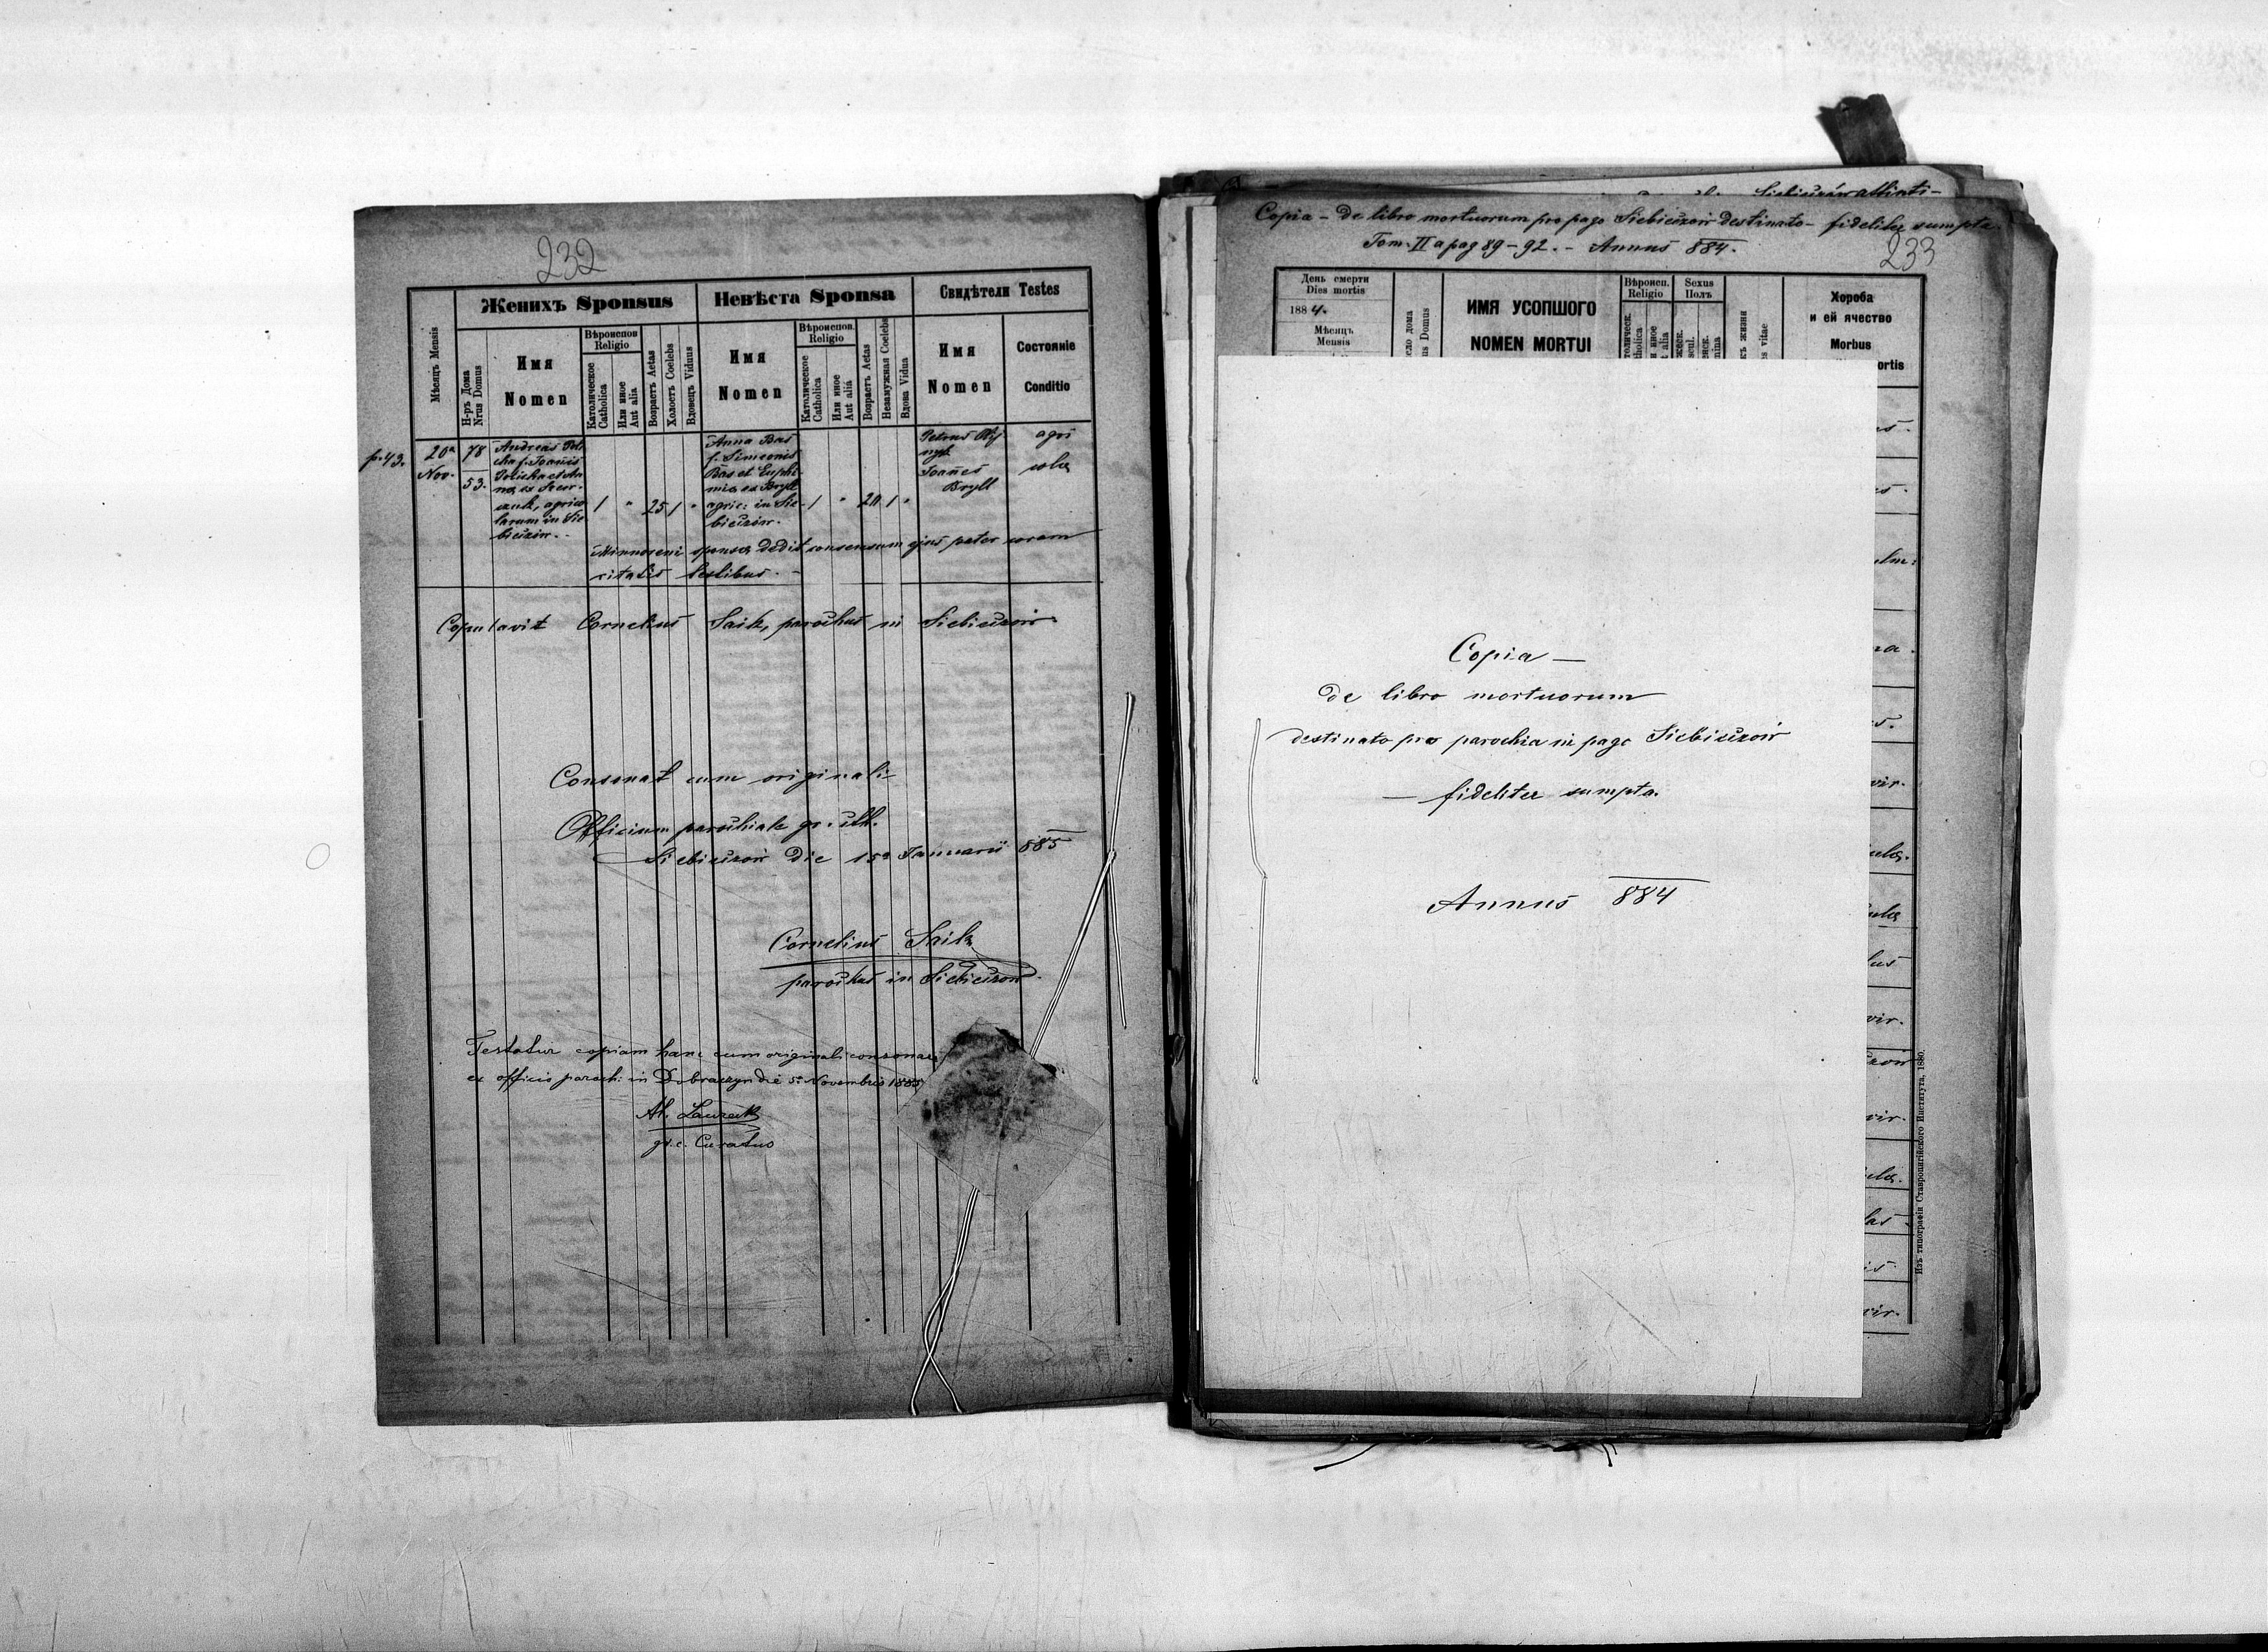 232
Женихъ Sponsus
Невѣста Sponsa
Свидѣтели Testes
Мѣсяцъ Mensis
Н-ръ Дома
Nrus Domus
Имя
Nomen
Вѣроиспов
Religio
Католическое
Catholica
Или иное
Aut alia
Возрастъ Aetas
Холостъ Coelebs
Вдовецъ Viduus
Имя
Nomen
Вѣроиспов.
Religio
Католическое
Catholica
Или иное
Aut aliá
Возрастъ Aetas
Незамужная Coelebs
Вдова Vidua
Имя
Nomen
Состояніе
Conditio
p. 43.
20a
Nov.
78
53.
Andreas
f. Joanis
et An
na
agrico
larum in Sie
bieczów.
1 " 25 1 "
Anna Bas
f. Simeonis
Bas et Euphi
mia ex Bryll
agric: in Sie-
bieczów.
1 " 20 1 "
Petrus
Joañes
Bryll
agri
colae
Minnoreni sponsae dedit consensum ejus pater coram
citatis testibus. -
Copulavit Cornelius Saik, parochus in Siebieczów
Consonat cum originali
Officium parochiale gr. cth.
Siebieczów die 15a Januarii 885
Cornelius Saik
parochus in Siebieczów.
Testatur copiam hanc cum originali consonare
ex officio paroch: in Dobraczyn die 5a Novembris 1885
gr. c. Curatus
Siebieczów
Copia - de libro mortuorum pro pago Siebieczów destinato - fideliter sumpta.
Tom. II a pag 89 - 92. - Annus 884.
233
День смерти
Dies mortis
1884.
Мѣсяцъ
Mensis
ло дома
us Domus
ИМЯ УСОПШОГО
NOMEN MORTUI
Вѣроисп.
Religio
Sexus
Полъ
Хороба
и ей ячество
Morbus
ortis
Copia —
de libro mortuorum
destinato pro parochia in pago Siebieczów
— fideliter sumpta.
Annus 884
Изъ типографіи Ставропигійского Института, 1880.